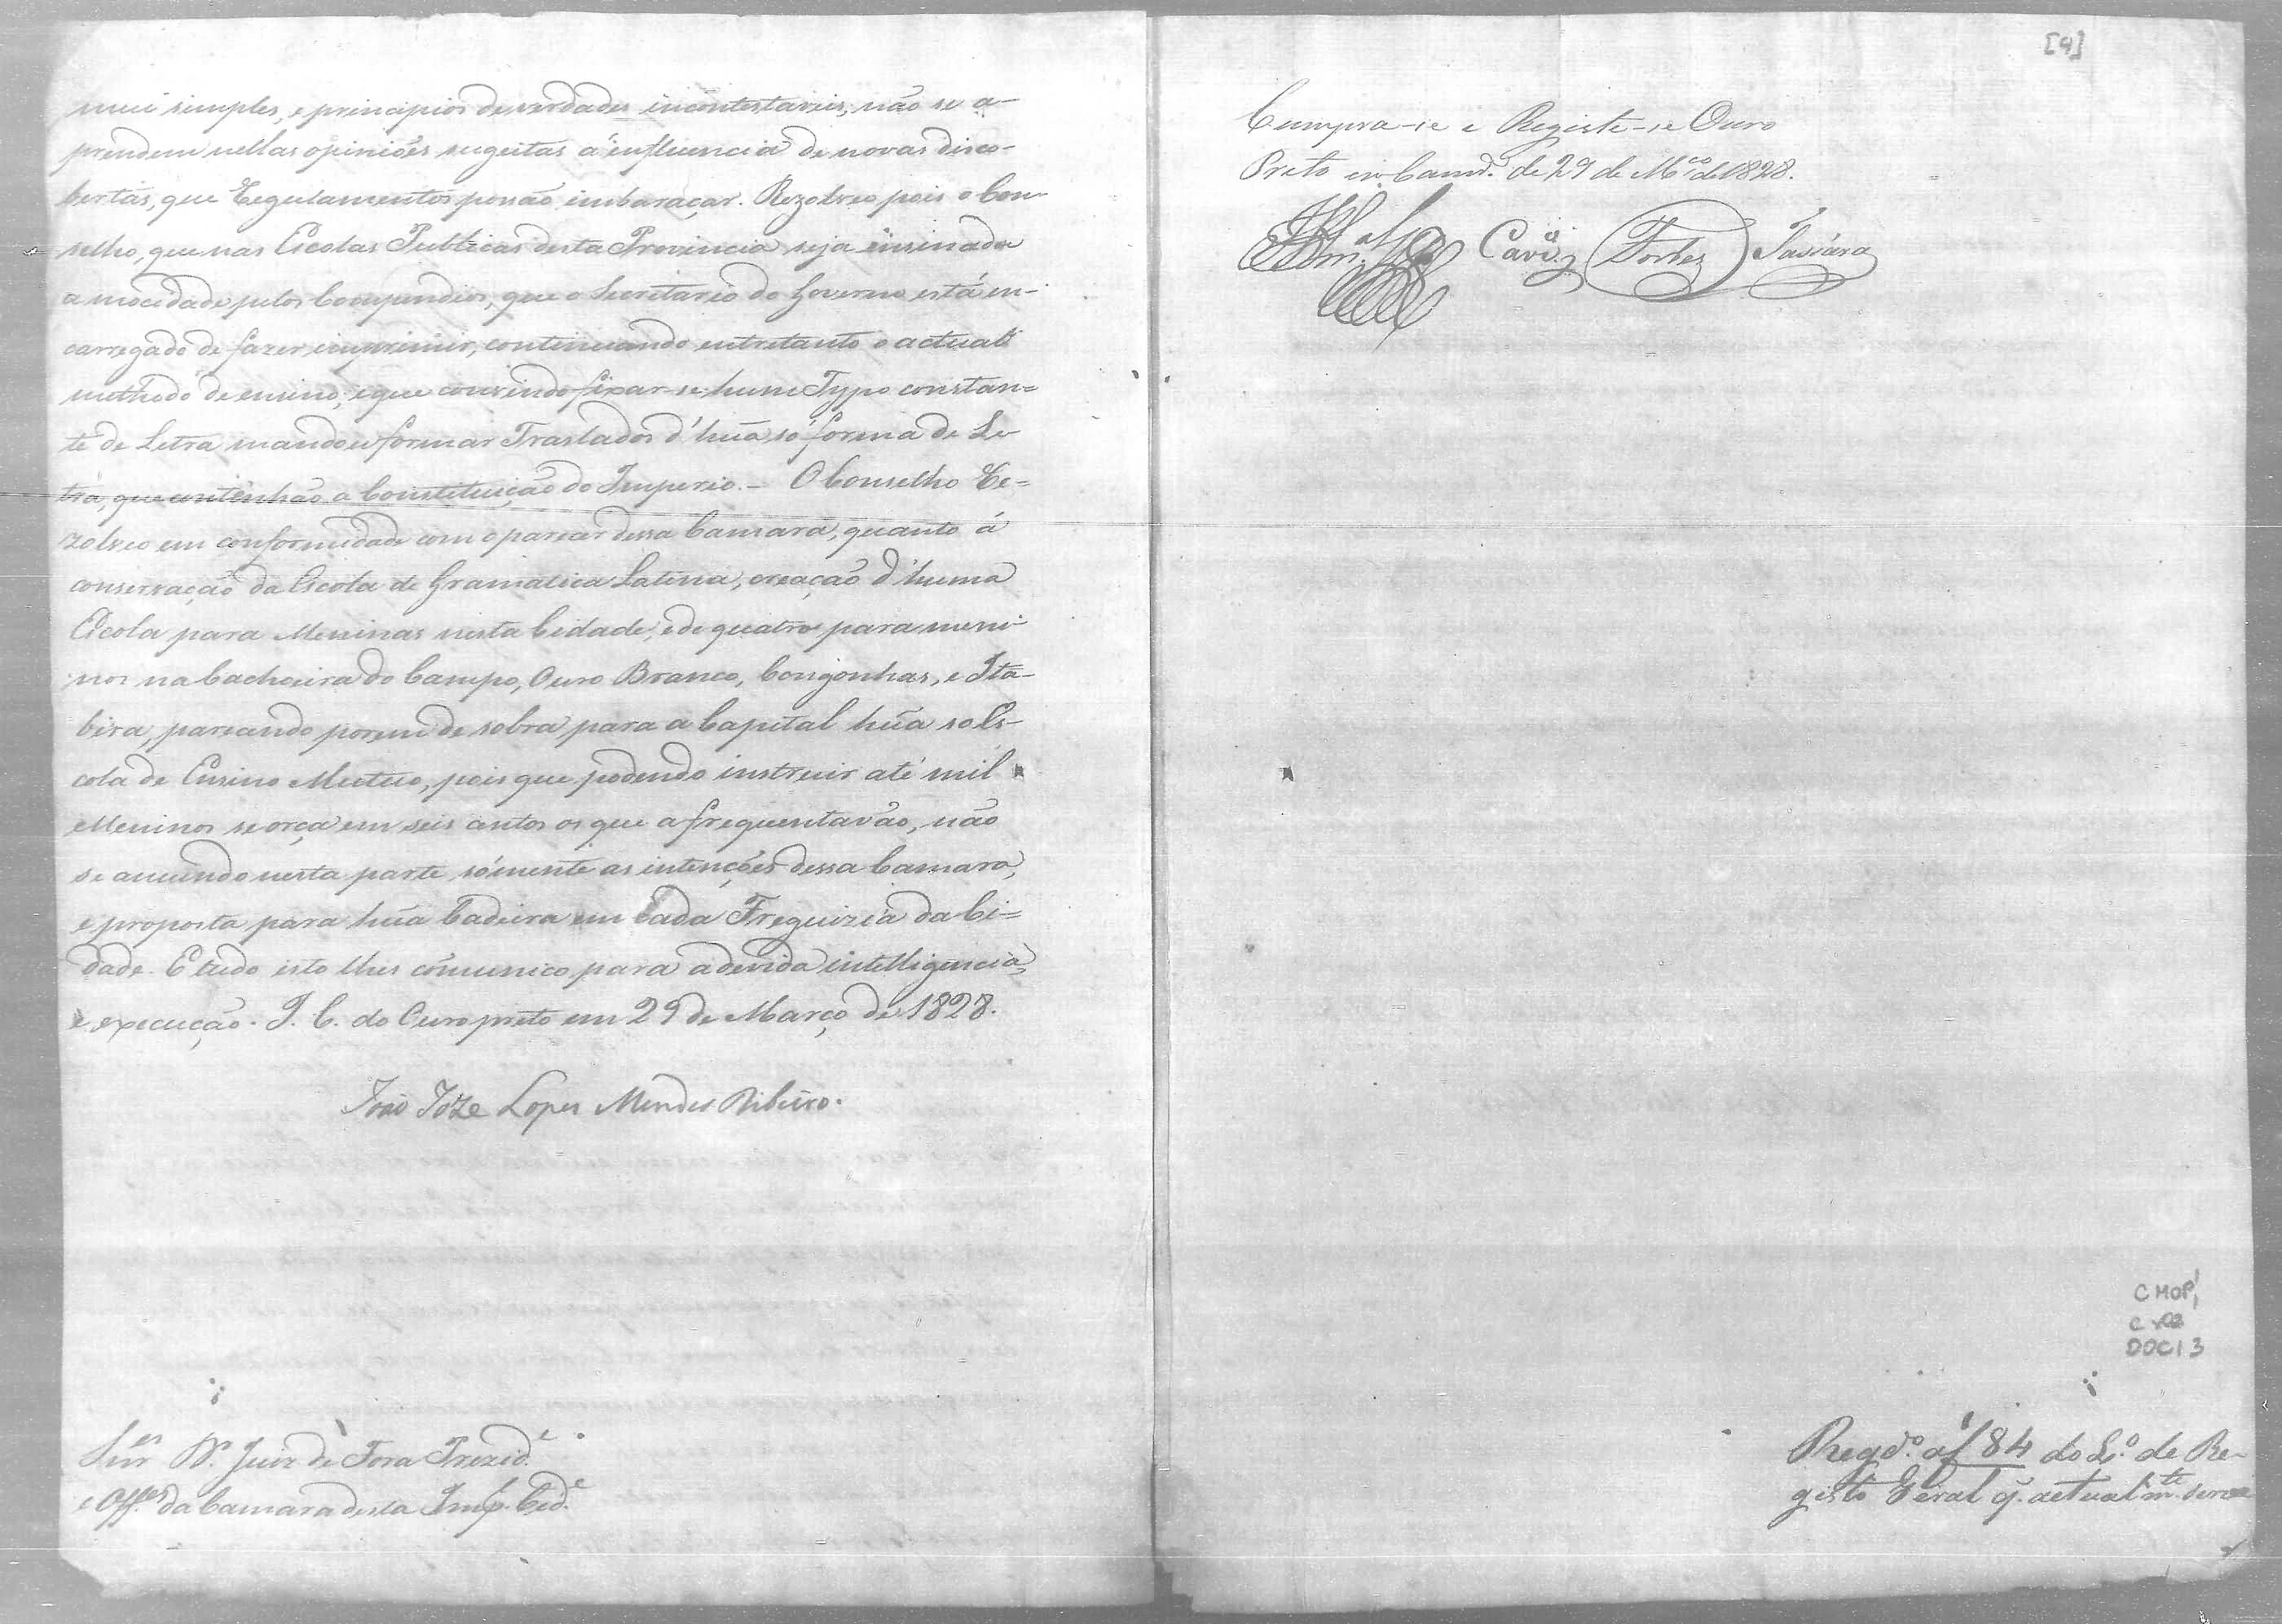 mui simples, e principios de verdades incontestaveis, não se a-
prendem nellas opiniões sugeitas á influencia de novas disco-
bertas, que Regulamentos possão imbaraçar. Rezolveo pois o Con-
selho, que nas Escolas Publicas desta Provincia seja ensinada
a mocidade pelos Compendios, que o Secretario do Governo está en-
carregado de fazer imprimir, continuando entretanto o actual
methodo de ensino; e que convindo fixar-se hum Typo constan=
te de Letra mandou formar Traslados d'hũa só forma de Le-
tra, que contenhão a Constituição do Imperio. - O Conselho Re=
zolveo em conformidade com o parecer dessa Camara, quanto á
conservação da Escola de Gramatica Latina, creação d'huma
Escola para Meninas nesta Cidade, e de quatro para meni-
nos na Cachoeira do Campo, Ouro Branco, Congonhas, e Ita-
bira, parecendo porem de sobra para a Capital hũa só Es-
cola de Ensino Mutuo, pois que podendo instruir até mil
Meninos se orça em seis centos os que a frequentarão, não
se anuindo nesta parte sómente as intenções dessa Camara,
e proposta para hũa Cadeira em Cada Freguizia da Ci=
dade. E tudo isto lhes cõmunico para a devida intelligencia,
e execução. I. C. do Ouro preto em 29 de Março de 1828.
João Joze Lopes Mendes Ribeiro.
Snr.es Dr. Juiz de Fora Prezid.e
e Off.es da Camara desta Imp. Cid.e
[4]
Cumpra-se e Registe-se Ouro
Preto em Camr.a de 29 de M.ço de 1828.
Forbes Tassara
CMOP
DOC 13
Regd.o a f 84 do L.o de Re-
gisto Geral q. actualm.te serve